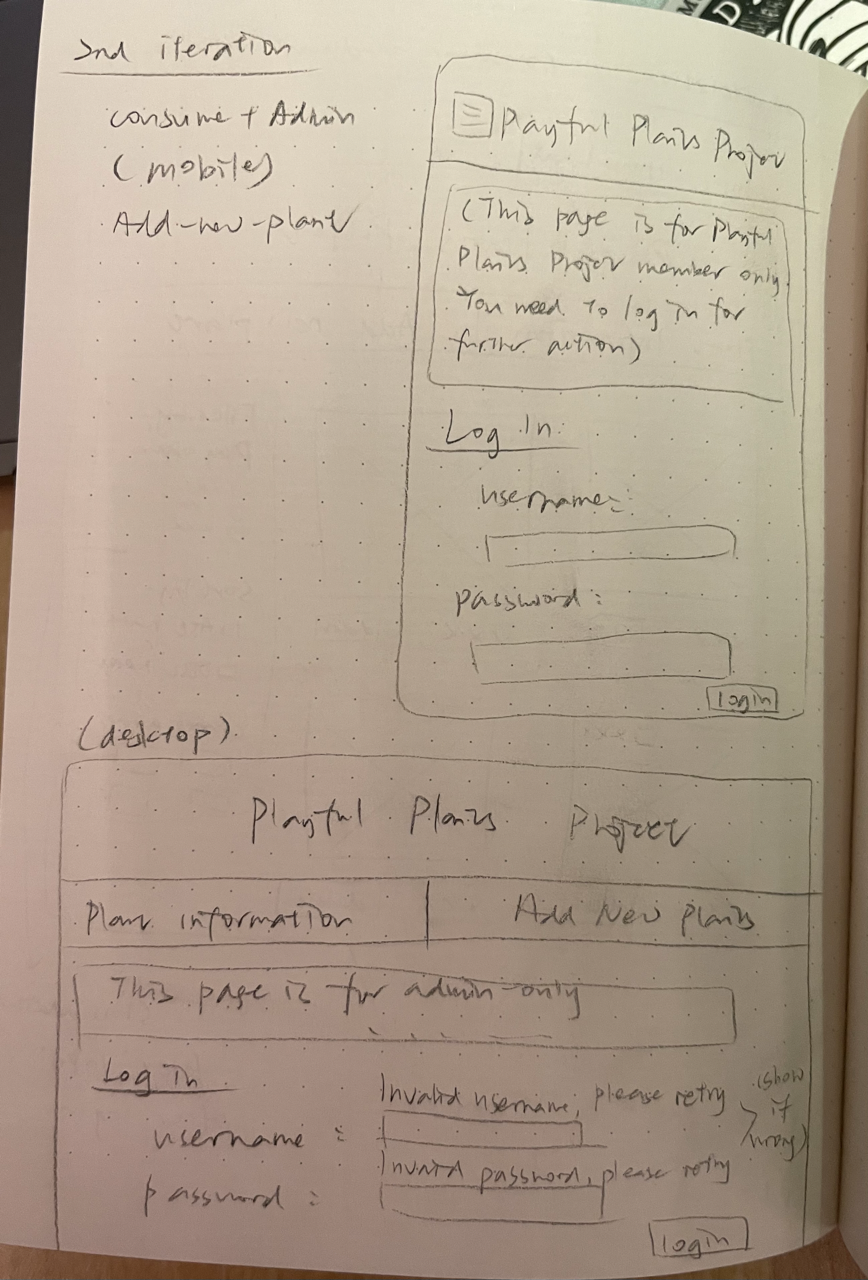 2nd iteration
consumer + Admin
(mobile)
Add-new-plant
Playful Plants Project
(This page is for Playful
Plants Project member only
You need to log in for
further action)
Log In:
username:
password:
login
(desktop)
Playful Plants Project
Plant information
Add New Plants
This page is for admin-only
....
Log In
Invalid username, please retry
(show
if
wrong)
username :
Invalid password, please retry
password :
login